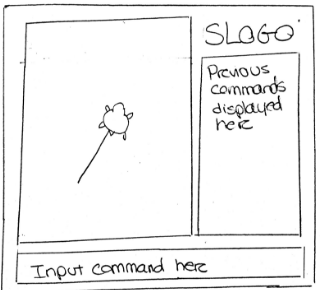 SLOGO
Previous
commands
displayed
here
Input command here